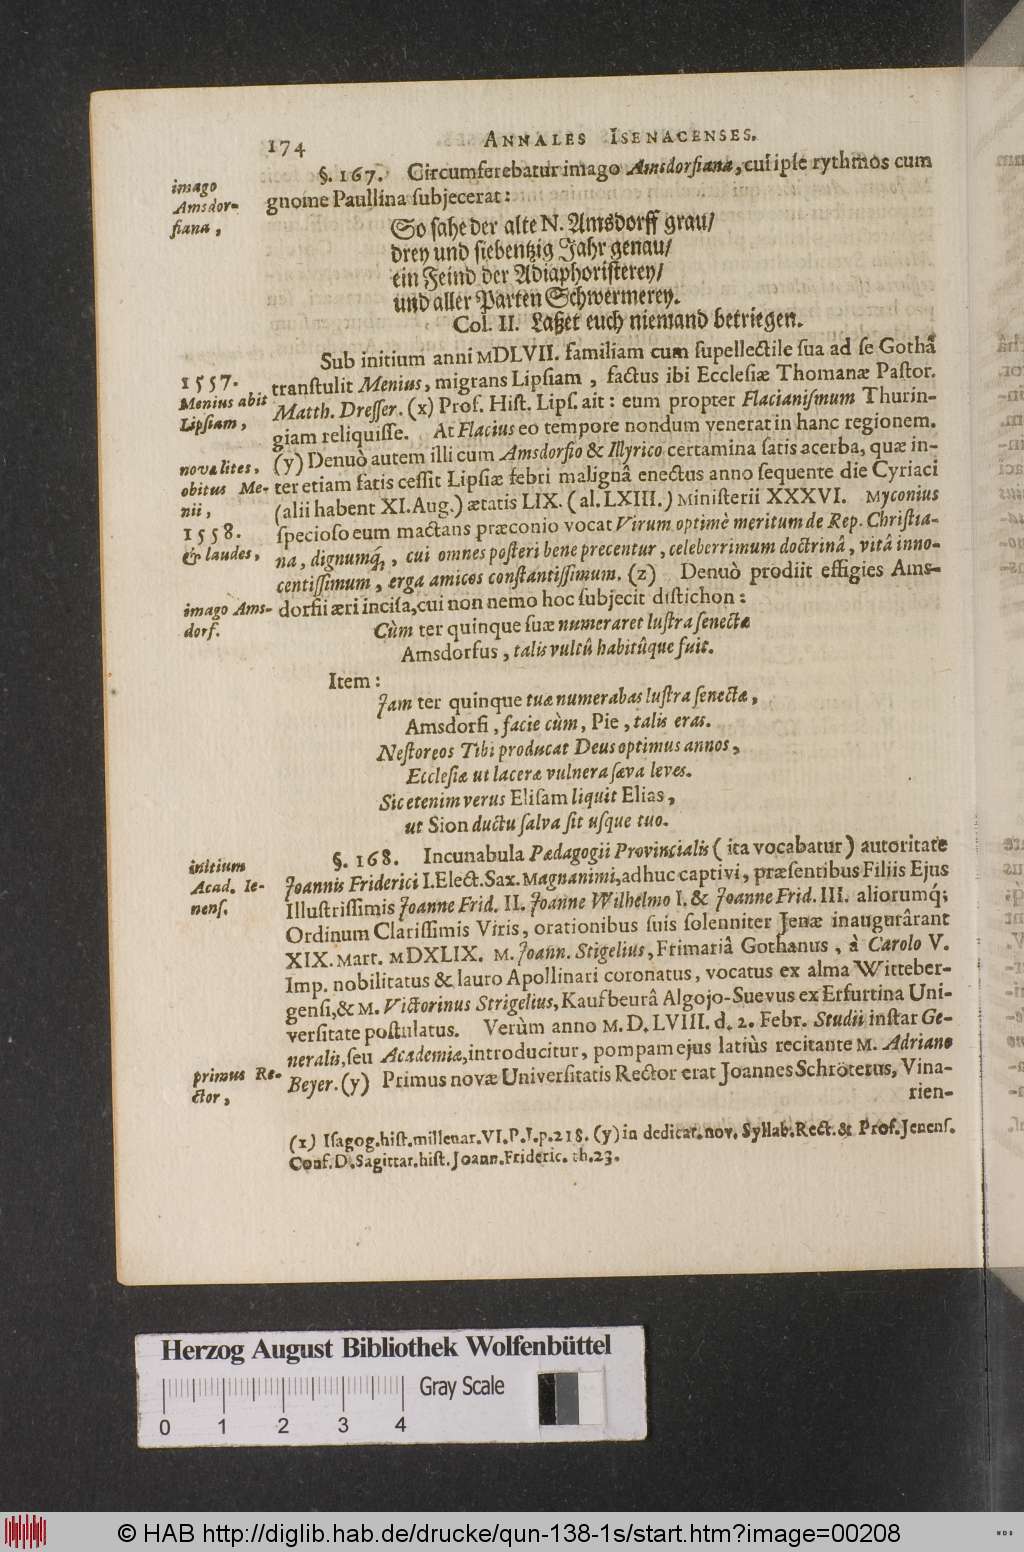 174 ANNALES ISENACENSES.
imago
Amsdor-
fiana,
§. 167. Circumferebatur imago Amsdorfiana, cui ipſe rythmos cum
gnome Paullina ſubjecerat:
So ſahe der alte N. Amsdorff grau/
drey und ſiebentzig Jahr genau/
ein Feind der Adiaphoriſterey/
und aller Parten Schwermerey.
Col. II. Laßet euch niemand betriegen.
1557.
Menius abit
Lipſiam,
novæ lites,
obitus Me-
nii,
1558.
& laudes,
imago Ams-
dorf.
Sub initium anni MDLVII. familiam cum ſupellectile ſua ad ſe Gothâ
tranſtulit Menius, migrans Lipſiam, factus ibi Eccleſiæ Thomanæ Paſtor.
Matth. Dreſſer. (x) Prof. Hiſt. Lipſ. ait: eum propter Flacianiſmum Thurin-
giam reliquiſſe. At Flacius eo tempore nondum venerat in hanc regionem.
(y) Denuò autem illi cum Amsdorfio & Illyrico certamina ſatis acerba, quæ in-
ter etiam fatis ceſſit Lipſiæ febri malignâ enectus anno ſequente die Cyriaci
(alii habent XI. Aug.) ætatis LIX. (al. LXIII.) Miniſterii XXXVI. Myconius
ſpecioſo eum mactans præconio vocat Virum optimè meritum de Rep. Chriſtia-
na, dignumq́;, cui omnes poſteri bene precentur, celeberrimum doctrinâ, vitâ inno-
centiſſimum, erga amicos conſtantiſſimum. (z) Denuò prodiit effigies Ams-
dorfii æri inciſa, cui non nemo hoc ſubjecit diſtichon:
Cùm ter quinque ſuæ numeraret luſtra ſenectæ
Amsdorfus, talis vultû habitûque fuit.
Item:
Jam ter quinque tuæ numerabas luſtra ſenectæ,
Amsdorfi, facie cùm, Pie, talis eras.
Neſtoreos Tibi producat Deus optimus annos,
Eccleſiæ ut laceræ vulnera ſæva leves.
Sic etenim verus Eliſam liquit Elias,
ut Sion ductu ſalva ſit uſque tuo.
initium
Acad. Ie-
nenſ.
primus Re-
ctor,
§. 168. Incunabula Pædagogii Provincialis (ita vocabatur) autoritate
Joannis Friderici I. Elect. Sax. Magnanimi, adhuc captivi, præſentibus Filiis Ejus
Illuſtriſſimis Joanne Frid. II. Joanne Wilhelmo I. & Joanne Frid. III. aliorumq́;
Ordinum Clariſſimis Viris, orationibus ſuis ſolenniter Jenæ inaugurârant
XIX. Mart. MDXLIX. M. Joann. Stigelius, Frimariâ Gothanus, à Carolo V.
Imp. nobilitatus & lauro Apollinari coronatus, vocatus ex alma Witteber-
genſi, & M. Victorinus Strigelius, Kaufbeurâ Algojo-Suevus ex Erfurtina Uni-
verſitate poſtulatus. Verùm anno M. D. LVIII. d. 2. Febr. Studii inſtar Ge-
neralis, ſeu Academiæ, introducitur, pompam ejus latiùs recitante M. Adriano
Beyer. (y) Primus novæ Univerſitatis Rector erat Joannes Schröterus, Vina-
rien-
(x) Iſagog. hiſt. millenar. VI. P. I. p. 218. (y) in dedicat. nov. Syllab. Rect. & Prof. Jenenſ.
Conf. D. Sagittar. hiſt. Joann. Frideric. th. 23.
Herzog August Bibliothek Wolfenbüttel
Gray Scale
0 1 2 3 4
© HAB http://diglib.hab.de/drucke/qun-138-1s/start.htm?image=00208